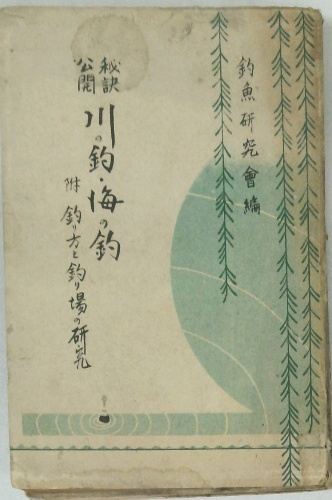 釣魚研究會編
秘訣
公開
川の釣・海の釣
附 釣り方と釣り場の研究